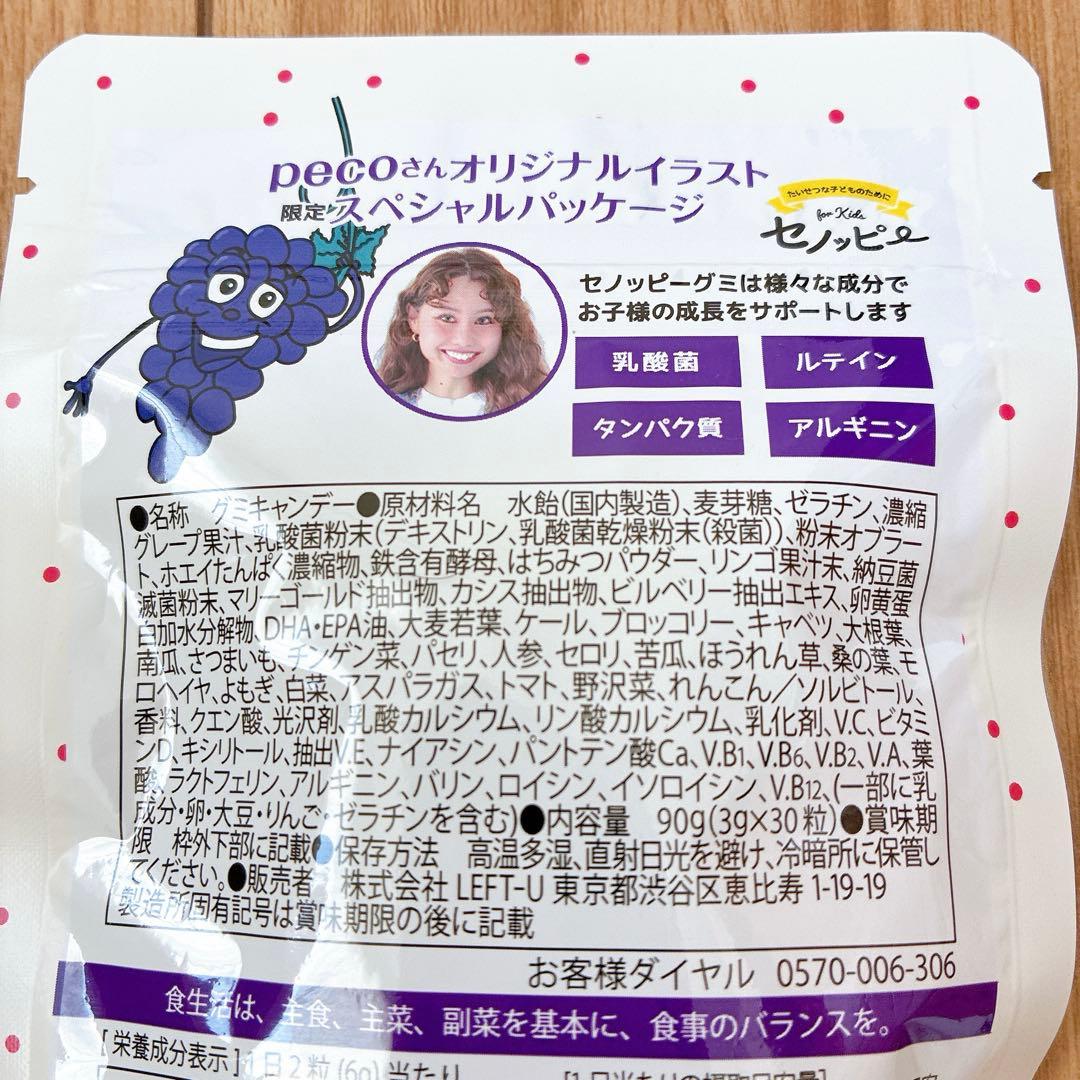 pecoさんオリジナルイラスト
限定スペシャルパッケージ
たいせつな子どものために
for Kids
セノッピー
セノッピーグミは様々な成分で
お子様の成長をサポートします
乳酸菌
ルテイン
タンパク質
アルギニン
●名称 グミキャンデー●原材料名 水飴(国内製造)、麦芽糖、ゼラチン、濃縮
グレープ果汁、乳酸菌粉末(デキストリン、乳酸菌乾燥粉末(殺菌))、粉末オブラー
ト、ホエイたんぱく濃縮物、鉄含有酵母、はちみつパウダー、リンゴ果汁末、納豆菌
滅菌粉末、マリーゴールド抽出物、カシス抽出物、ビルベリー抽出エキス、卵黄蛋
白加水分解物、DHA・EPA油、大麦若葉、ケール、ブロッコリー、キャベツ、大根葉、
南瓜、さつまいも、チンゲン菜、パセリ、人参、セロリ、苦瓜、ほうれん草、桑の葉、モ
ロヘイヤ、よもぎ、白菜、アスパラガス、トマト、野沢菜、れんこん／ソルビトール、
香料、クエン酸、光沢剤、乳酸カルシウム、リン酸カルシウム、乳化剤、V.C、ビタミ
ンD、キシリトール、抽出V.E、ナイアシン、パントテン酸Ca、V.B1、V.B6、V.B2、V.A、葉
酸、ラクトフェリン、アルギニン、バリン、ロイシン、イソロイシン、V.B12、(一部に乳
成分・卵・大豆・りんご・ゼラチンを含む)●内容量 90g(3g×30粒)●賞味期
限 枠外下部に記載●保存方法 高温多湿、直射日光を避け、冷暗所に保管し
てください。●販売者 株式会社 LEFT-U 東京都渋谷区恵比寿 1-19-19
製造所固有記号は賞味期限の後に記載
お客様ダイヤル 0570-006-306
食生活は、主食、主菜、副菜を基本に、食事のバランスを。
[栄養成分表示]1日2粒(6g)当たり